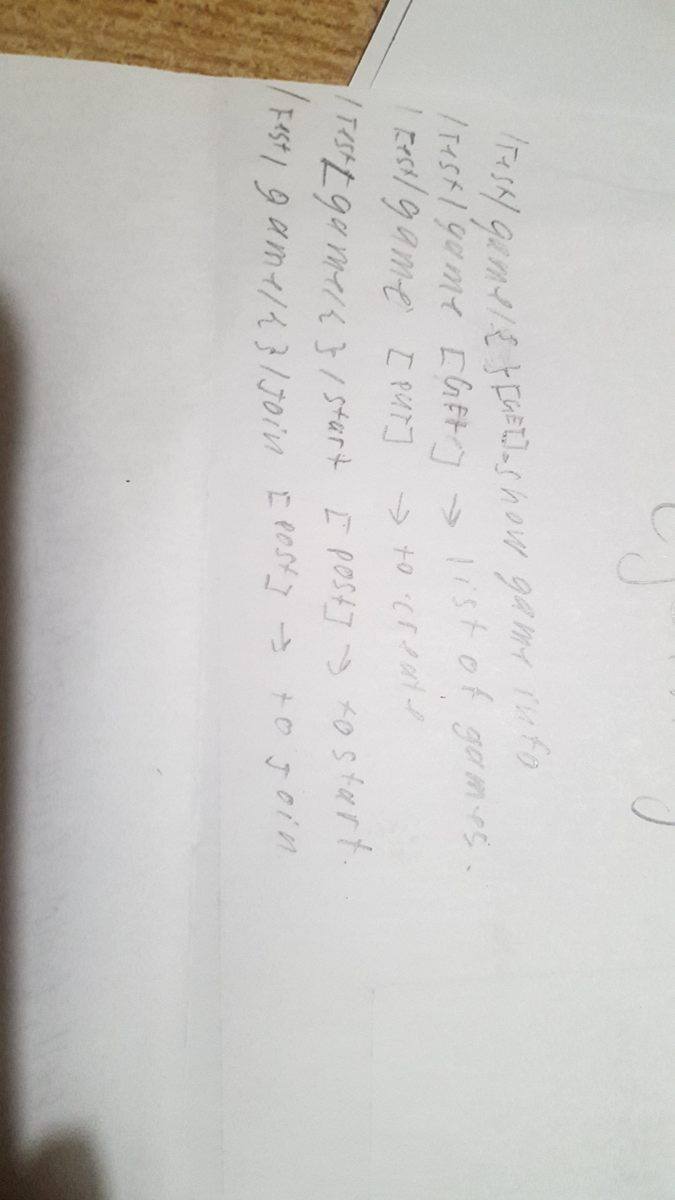 /Test/game/{ }[GET]-show game info
/Test/game [GEt] → list of games.
/Test/game [PUT] → to create
/Test[game/{ }/start [POSt] → to start.
/Test/ game/{ }/Join [POSt] → to Join